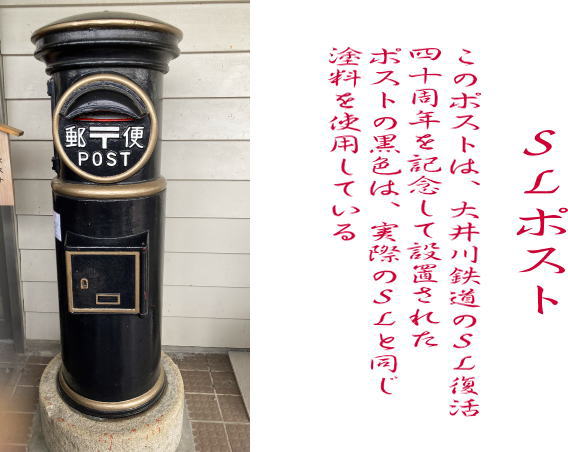 郵〒便
POST
SLポスト
このポストは、大井川鉄道のSL復活
四十周年を記念して設置された
ポストの黒色は、実際のSLと同じ
塗料を使用している